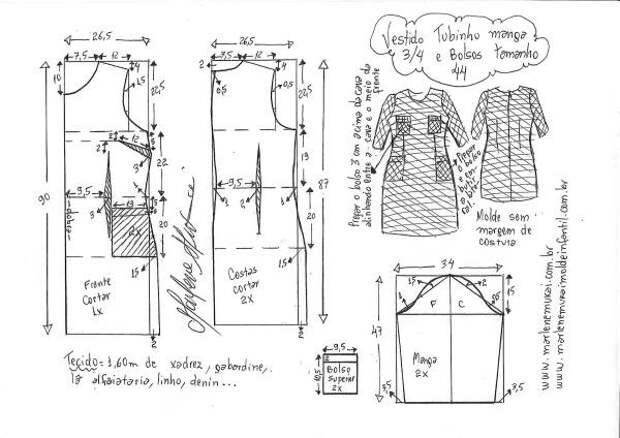 Vestido Tubinho manga
3/4 e Bolsos tamanho
44
26,5
7,5
12
4
10
1,5
22,5
2
12
3
22
9,5
3
13
20
90
1,5
2
Frente
Cortar
1x
26,5
7,5
12
2
4
0,5
0,5
22,5
19
9,5
3
1
20
87
1,5
Costas
cortar
2x
Marlene Mukai
Pregar o bolso 3 cm acima da cava
alinhando entre a cava e o meio da
frente
Pregar
o bolso
Molde sem
margem de
costura
www.marlenemukai.com.br
www.marlenemukaimoldeinfantil.com.br
34
15
47
F
C
2
Manga
2x
3,5
3,5
9,5
10,5
2
Bolso
Superior
2x
Tecido = 1,60m de xadrez, gabardine,
lã alfaiataria, linho, denin...